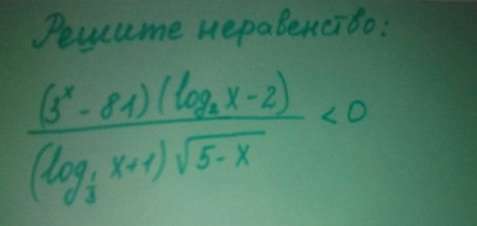 Решите неравенство:
(3ˣ - 81)(log₂ x - 2)
< 0
(log_{1/3} x + 1) √(5 - x)